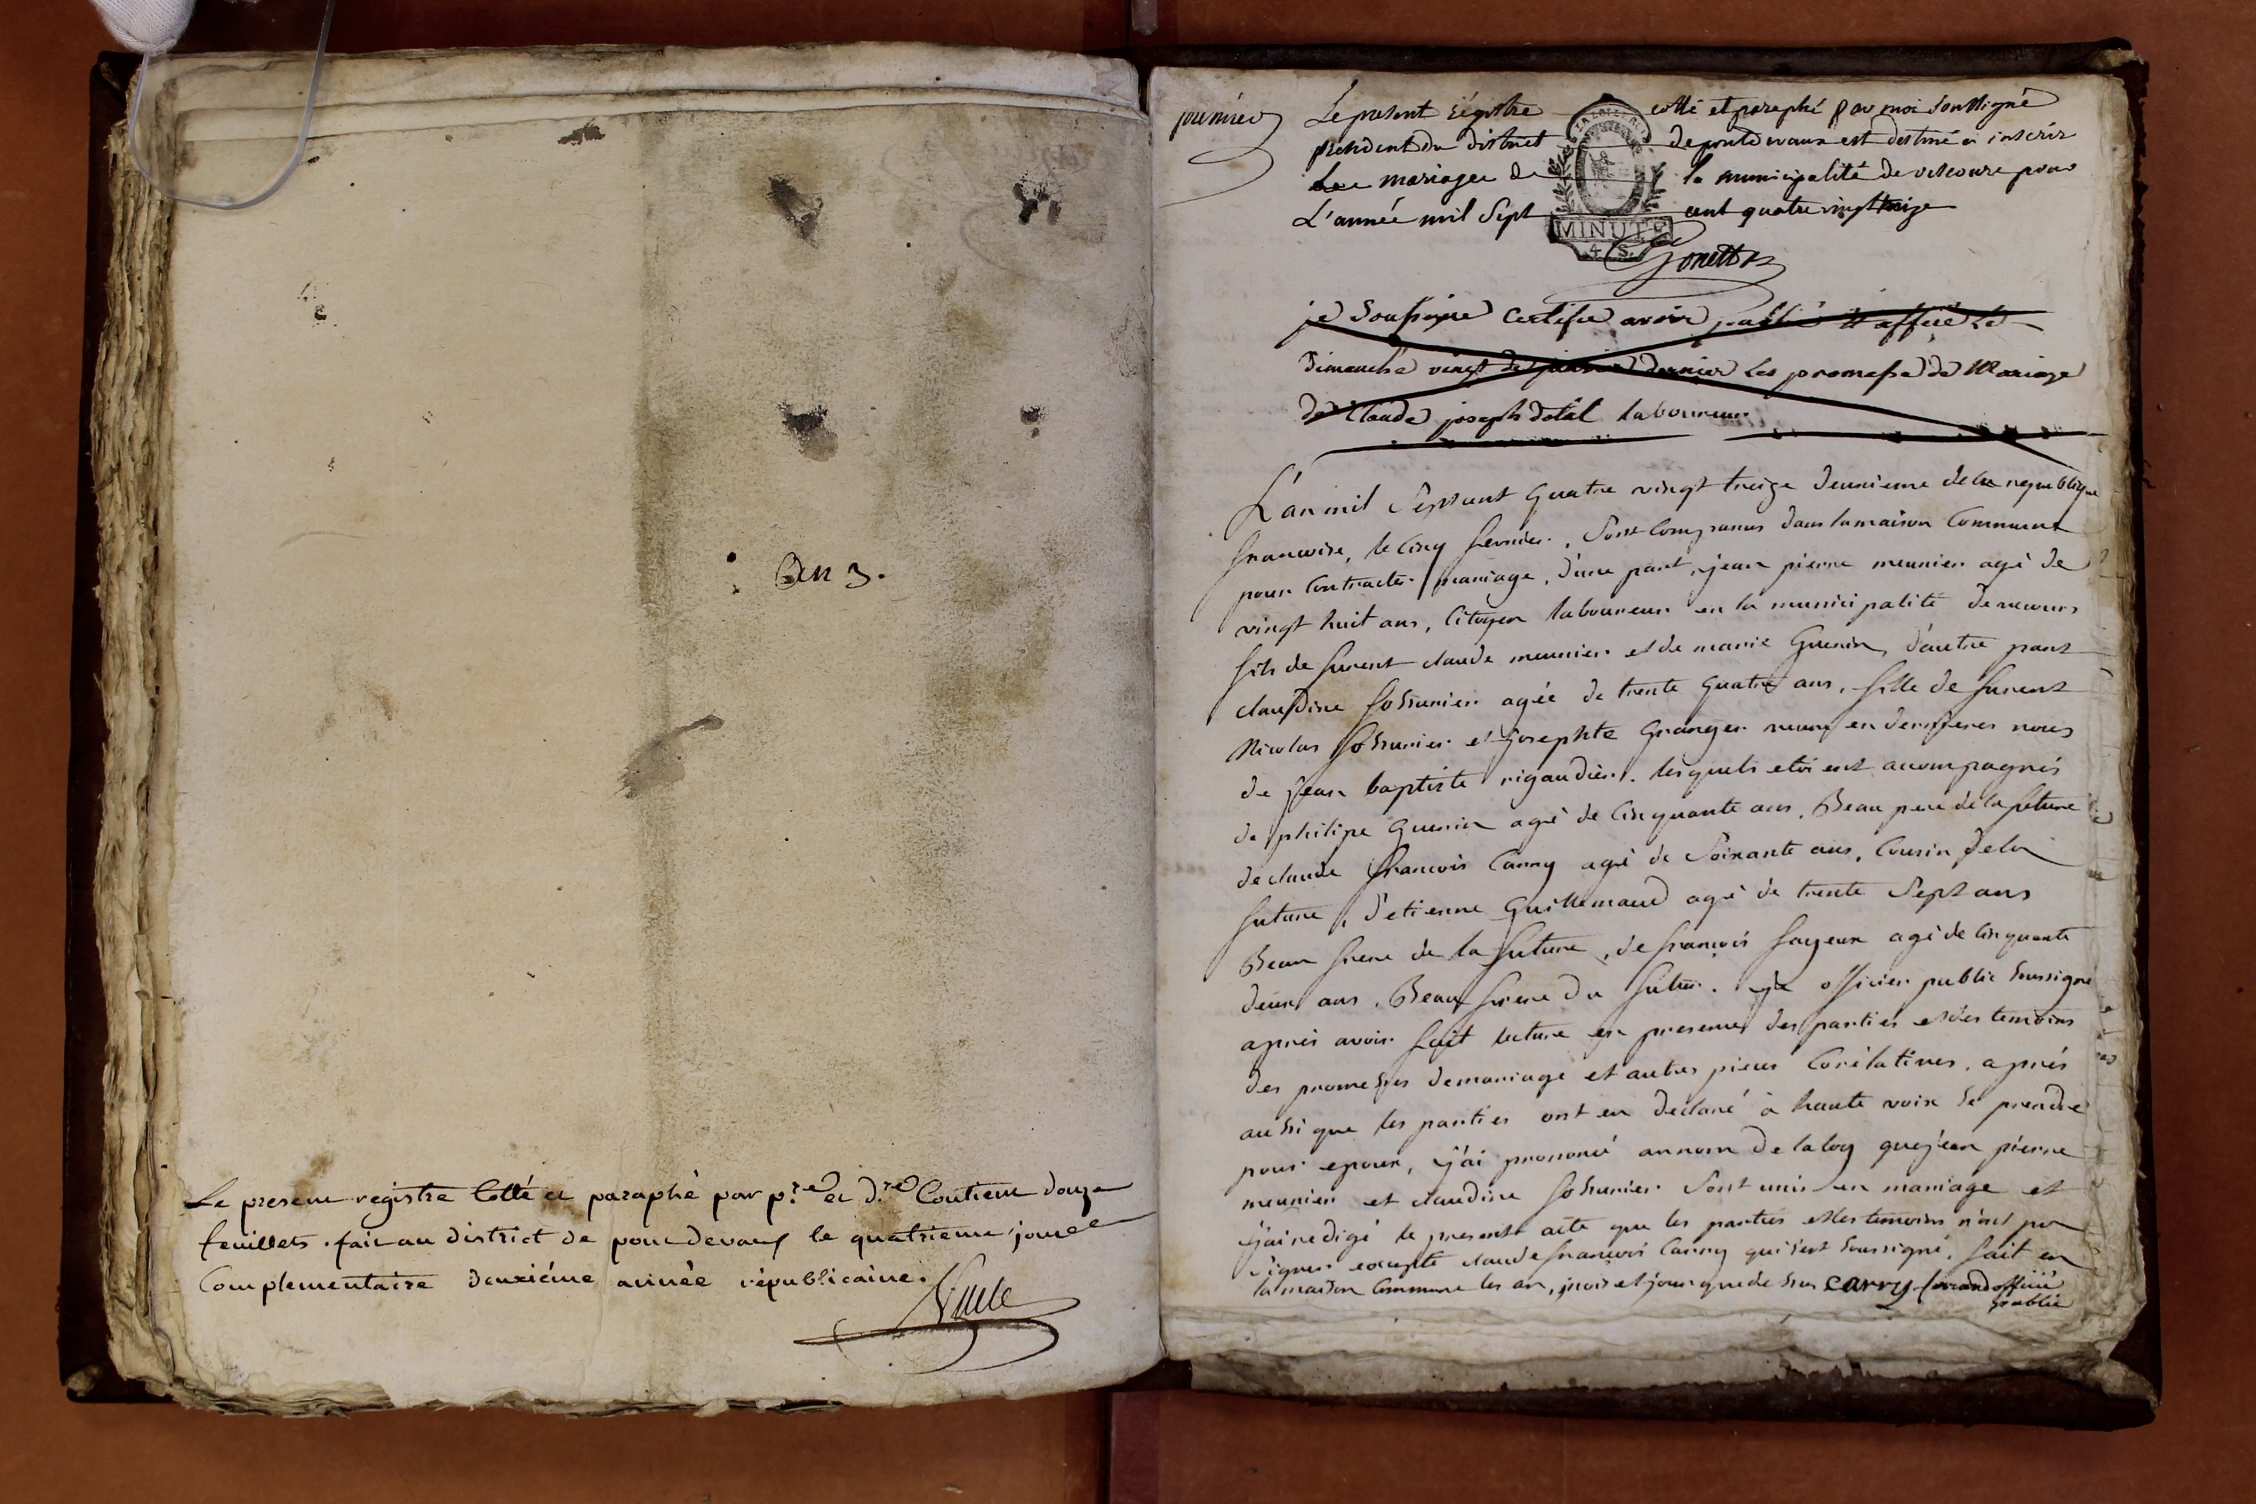 An 3.
Le present registre Cotté et paraphé par p.re et d.re Contient douze
feuillets. fait au district de pontdevaux le quatrieme jour
Complementaire deuxiéme année républicaine.
premier
Le present régistre cotté et paraphé par moi Soussigné
president du district de pontdevaux est destiné a inscrire
Les mariages de la municipalité de vescours pour
L'année mil Sept cent quatre vingt treize
MINUTE
4 S.
je Soussigné Certifie avoir publié et affiché Le
Dimanche vingt de janvier dernier Les promesse de Mariage
de Claude joseph laboureur
L'an mil Septcent quatre vingt treize deuxieme de la republique
francoise, le cinq fevrier. Sont Comparus dans la maison Commune
pour Contracter mariage, d'une part, jean pierre meunier agé de
vingt huit ans, Citoyen laboureur en la municipalité de vecours
fils de furent claude meunier et de marie Guerin, d'autre part
claudine agée de trente quatre ans, fille de furent
Nicolas et josephte Granger veuve en dernieres noces
de Jean baptiste rigaudier. lesquels etoient accompagnés
de philipe Guerin agé de Cinquante ans, Beau pere de la future
de claude francois Carry agé de Soixante ans, Cousin de la
future, d'etienne Guillemaud agé de trente Sept ans
Beau frere de la future, de francois fayeux agé de Cinquante
deux ans, Beau frere du futur. je officier public Soussigné
aprés avoir fait lecture en presence des parties et des temoins
des promesses de mariage et autres pieces Corélatives, aprés
aussi que les parties ont eu declaré à haute voix Se prendre
pour epoux, j'ai prononcé au nom de la loy que jean pierre
meunier et claudine Sont unis en mariage et
j'ai redigé le present acte que les parties et les temoins n'ont pu
Signer excepté claude francois Carry qui s'est Soussigné, fait en
la maison Commune les an, mois et jour que dessus carry officié
publie